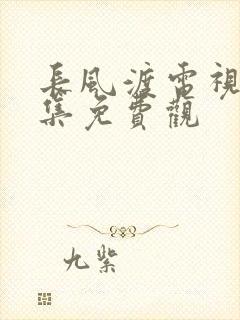 長風渡電視
集免費觀
九紫